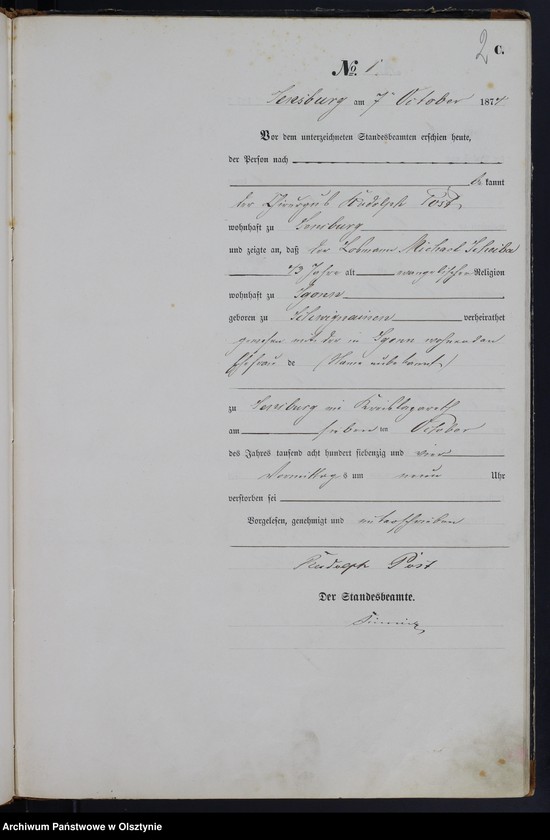 2 C.
No. 1.
Sensburg am 7. October 1874
Vor dem unterzeichneten Standesbeamten erschien heute,
der Person nach
bekannt
der Rudolph Post,
wohnhaft zu Sensburg
und zeigte an, daß der Losmann Michael
43 Jahre alt evangelischer Religion
wohnhaft zu Sgonn
geboren zu verheirathet
gewesen mit der in Sgonn wohnenden
Ehefrau de (Name unbekannt)
zu Sensburg im Kreislazareth
am sieben ten October
des Jahres tausend acht hundert siebenzig und vier
Vormittags um neun Uhr
verstorben sei
Vorgelesen, genehmigt und unterschrieben
Rudolph Post
Der Standesbeamte.
Archiwum Państwowe w Olsztynie